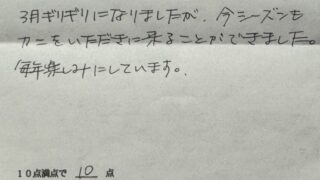 3月ギリギリになりましたが、今シーズンも
カニをいただきに来ることができました。
毎年楽しみにしています。
10点満点で 10 点